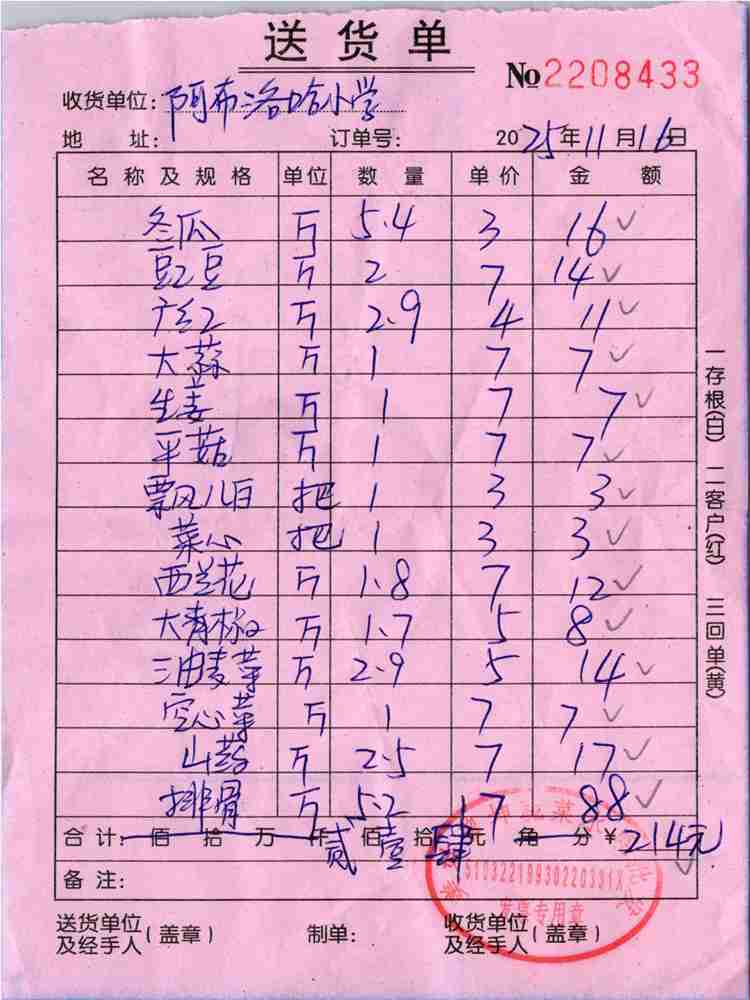 送货单
No 2208433
收货单位: 阿布洛哈小学
地 址: 订单号: 2025年11月16日
名称及规格 单位 数量 单价 金额
冬瓜 斤 5.4 3 16
豆豆 斤 2 7 14
斤 2.9 4 11
大蒜 斤 1 7 7
生姜 斤 1 7 7
平菇 斤 1 7 7
瓢儿白 把 1 3 3
菜心 把 1 3 3
西兰花 斤 1.8 7 12
大青椒 斤 1.7 5 8
油麦菜 斤 2.9 5 14
空心菜 斤 1 7 7
山药 斤 2.5 7 17
排骨 斤 5.2 17 88
合计: 佰 拾 万 仟 佰 拾 元 角 分 ¥ 214元
贰 壹 肆
备注:
发票专用章
送货单位及经手人(盖章) 制单: 收货单位及经手人(盖章)
一存根(白) 二客户(红) 三回单(黄)